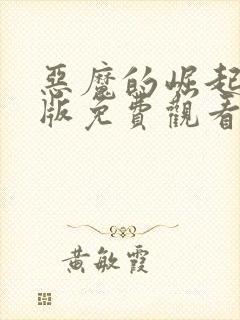 惡魔的崛起
版免費觀看
黃敏霞